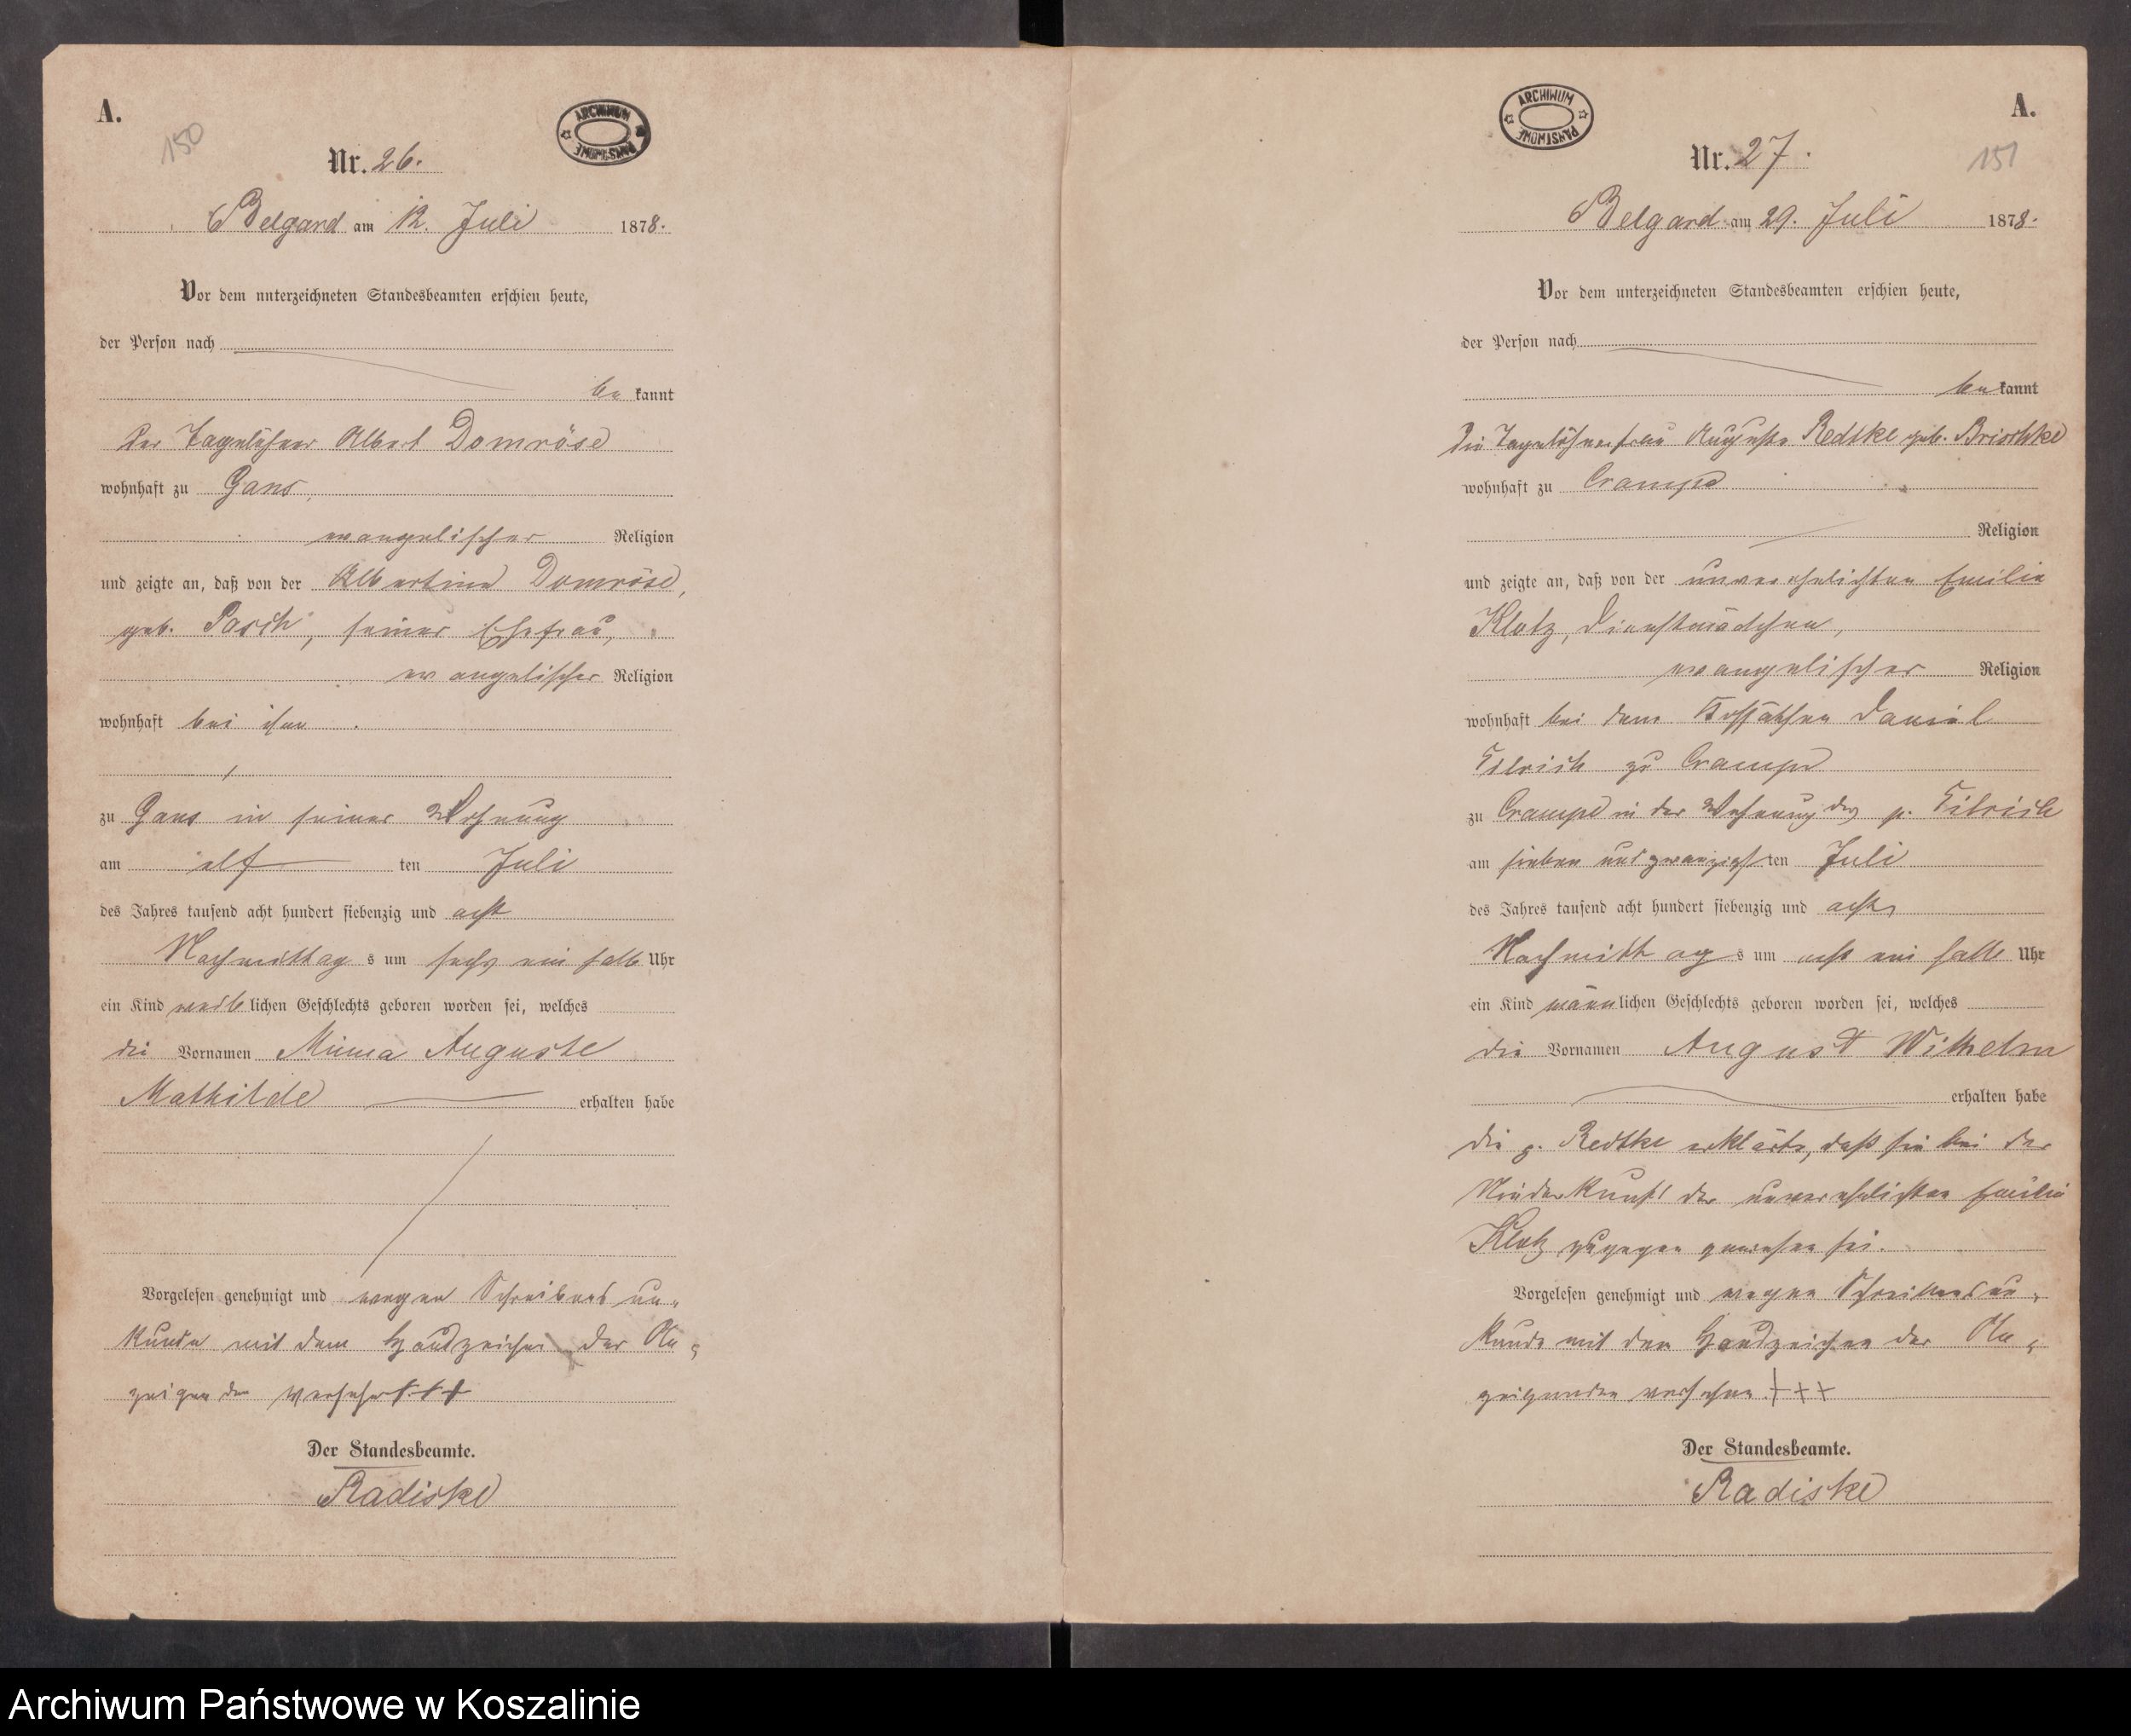 A.
150
ARCHIWUM PAŃSTWOWE
Nr. 26.
Belgard am 12. Juli 1878.
Vor dem unterzeichneten Standesbeamten erschien heute,
der Person nach
be kannt
Der Tagelöhner Albert Domröse
wohnhaft zu Gans,
evangelischer Religion
und zeigte an, daß von der Albertine Domröse,
geb. Pasch, seiner Ehefrau,
evangelischer Religion
wohnhaft bei ihm
zu Gans in seiner Wohnung
am elf ten Juli
des Jahres tausend acht hundert siebenzig und acht
Nachmittag s um sechs ein halb Uhr
ein Kind weiblichen Geschlechts geboren worden sei, welches
die Vornamen Minna Auguste
Mathilde erhalten habe
Vorgelesen genehmigt und wegen Schreibens un-
kunde mit dem Handzeichen der An-
zeigenden versehen +++
Der Standesbeamte.
Radiske
A.
151
ARCHIWUM PAŃSTWOWE
Nr. 27.
Belgard am 29. Juli 1878.
Vor dem unterzeichneten Standesbeamten erschien heute,
der Person nach
be kannt
Die Tagelöhnerfrau Auguste Redtke geb. Brischke
wohnhaft zu Crampe
Religion
und zeigte an, daß von der unverehelichten Emilie
Klotz, Dienstmädchen,
evangelischer Religion
wohnhaft bei dem Kossäthen Daniel
zu Crampe
zu Crampe in der Wohnung des p.
am sieben und zwanzigsten Juli
des Jahres tausend acht hundert siebenzig und acht
Nachmittag s um acht ein halb Uhr
ein Kind männlichen Geschlechts geboren worden sei, welches
die Vornamen August Wilhelm
erhalten habe
Die p. Redtke erklärte, daß sie bei der
Niederkunft der unverehelichten Emilie
Klotz zugegen gewesen sei.
Vorgelesen genehmigt und wegen Schreibens un-
kunde mit dem Handzeichen der An-
zeigenden versehen +++
Der Standesbeamte.
Radiske
Archiwum Państwowe w Koszalinie